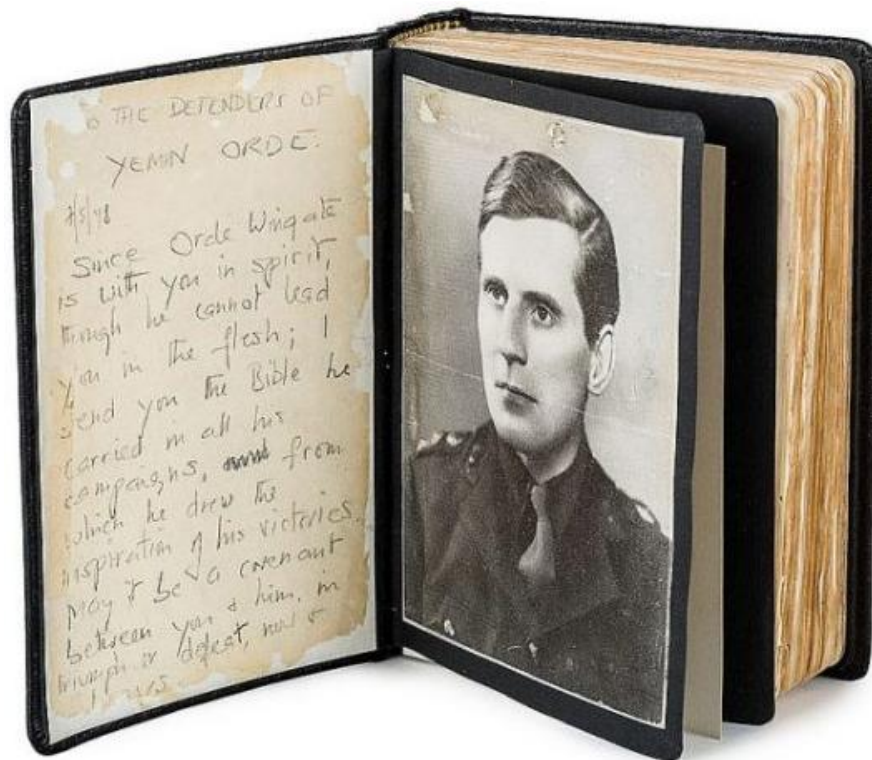 O THE DEFENDERS OF
YEMIN ORDE.
7/5/48
Since Orde Wingate
is with you in spirit,
though he cannot lead
you in the flesh; I
send you the Bible he
carried in all his
campaigns, and from
which he drew the
inspiration of his victories.
May it be a covenant
between you & him, in
triumph or defeat, now &